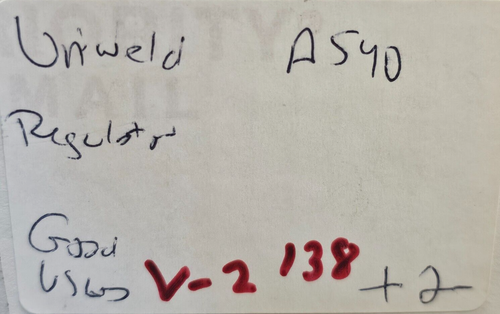 Uniweld A540
Regulator
Good
Used V-2 138 + 2
PRIORITY
MAIL